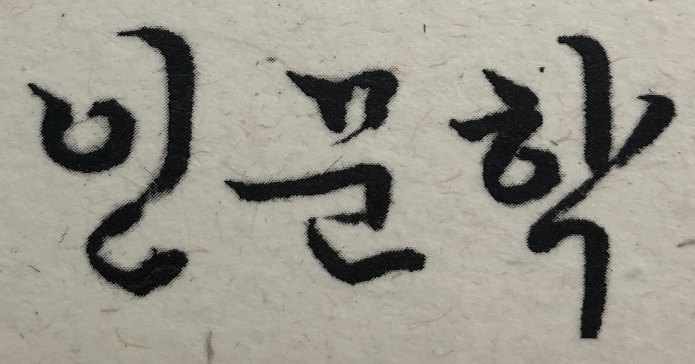 인문학